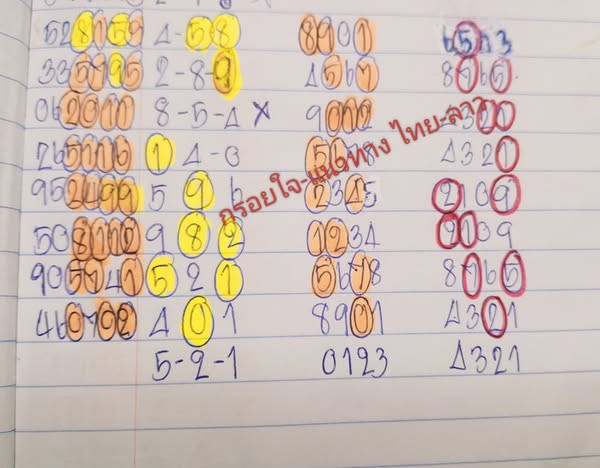 528159 4-58 8901 6543
335795 2-8-9 4567 8765
062011 8-5-4 X 9012 4320
765716 1 4-0 5678 4321
952499 5 9 6 2345 2109
508112 9 8 2 1234 2109
905741 5 2 1 5678 8765
460702 4 0 1 8901 4321
5-2-1 0123 4321
กรอยใจ-แนวทาง ไทย-ลาว